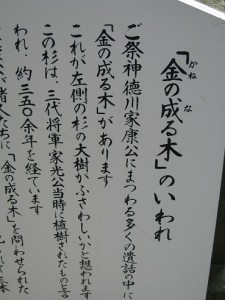 「金の成る木」のいわれ
かね な
ご祭神徳川家康公にまつわる多くの遺話の中に
「金の成る木」があります
これが左側の杉の大樹がふさわしいかと想われます
この杉は、三代将軍家光公当時に植樹されたもの言
われ、約三五〇余年を経ています
たちに、「金の成る木」を問わせられた